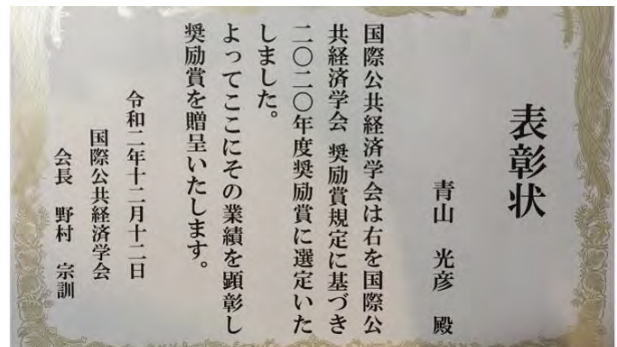 表彰状
青山 光彦 殿
国際公共経済学会は右を国際公
共経済学会 奨励賞規定に基づき
二〇二〇年度奨励賞に選定いた
しました。
よってここにその業績を顕彰し
奨励賞を贈呈いたします。
令和二年十二月十二日
国際公共経済学会
会長 野村 宗訓